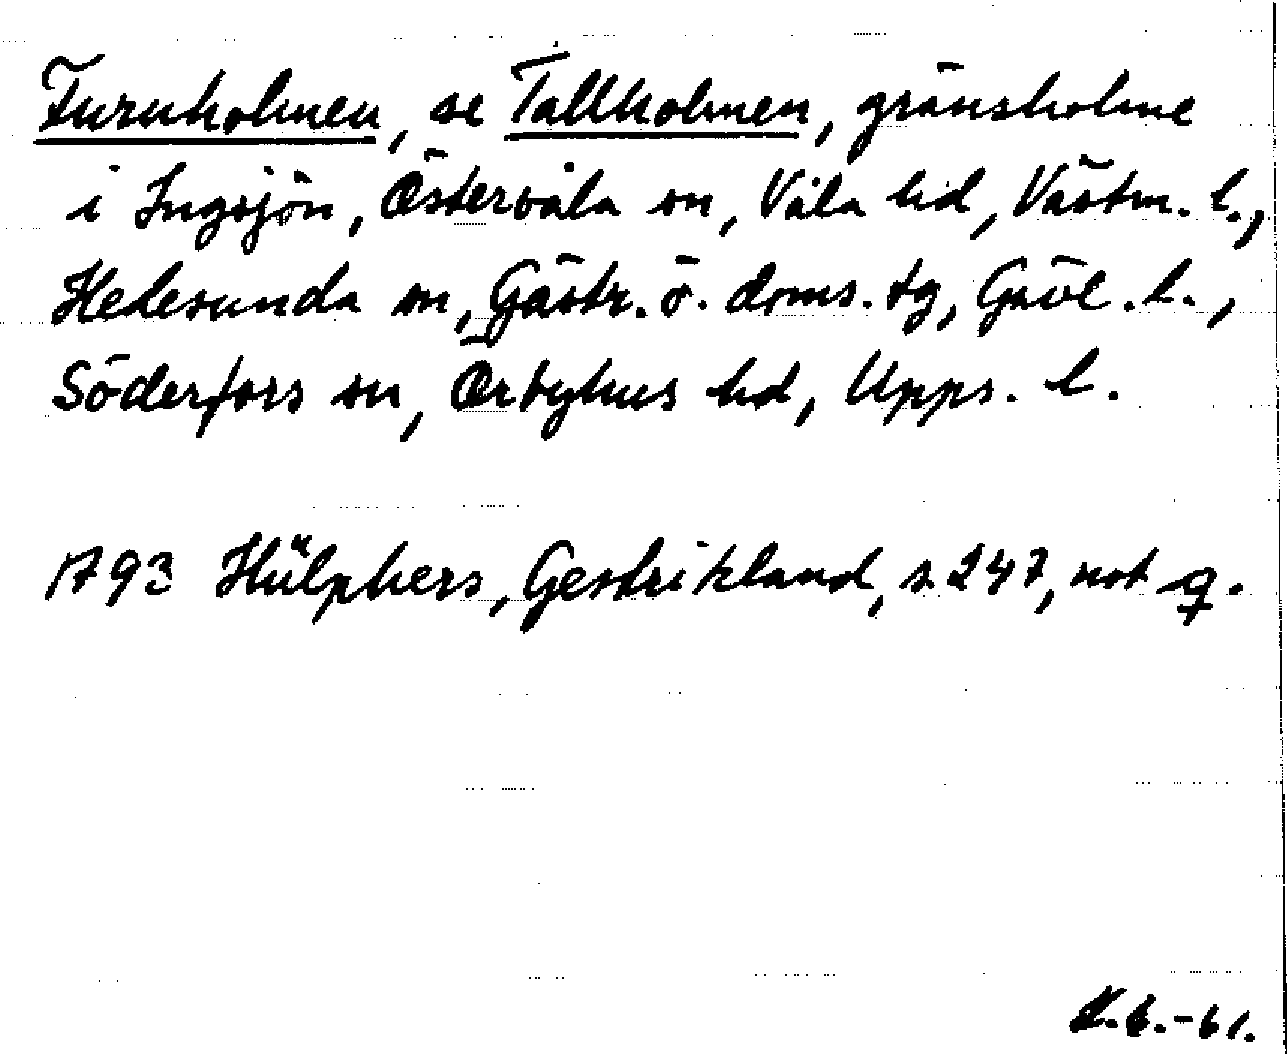 Furuholmen, se Tallholmen, gränsholme
i Ingsjön, Östervåla sn, Våla hd, Västm. l.,
Hedesunda sn, Gästr. ö. doms. tg, Gävl. l.,
Söderfors sn, Örbyhus hd, Upps. l.
1793 Hülphers, Gestrikland, s. 247, not q.
-61.